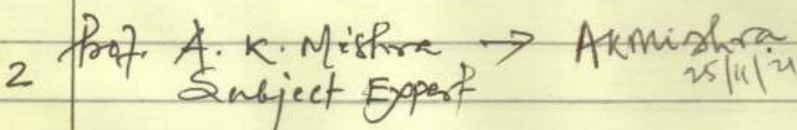 2 Prof. A. K. Mishra → AKMishra
25/11/21
Subject Expert